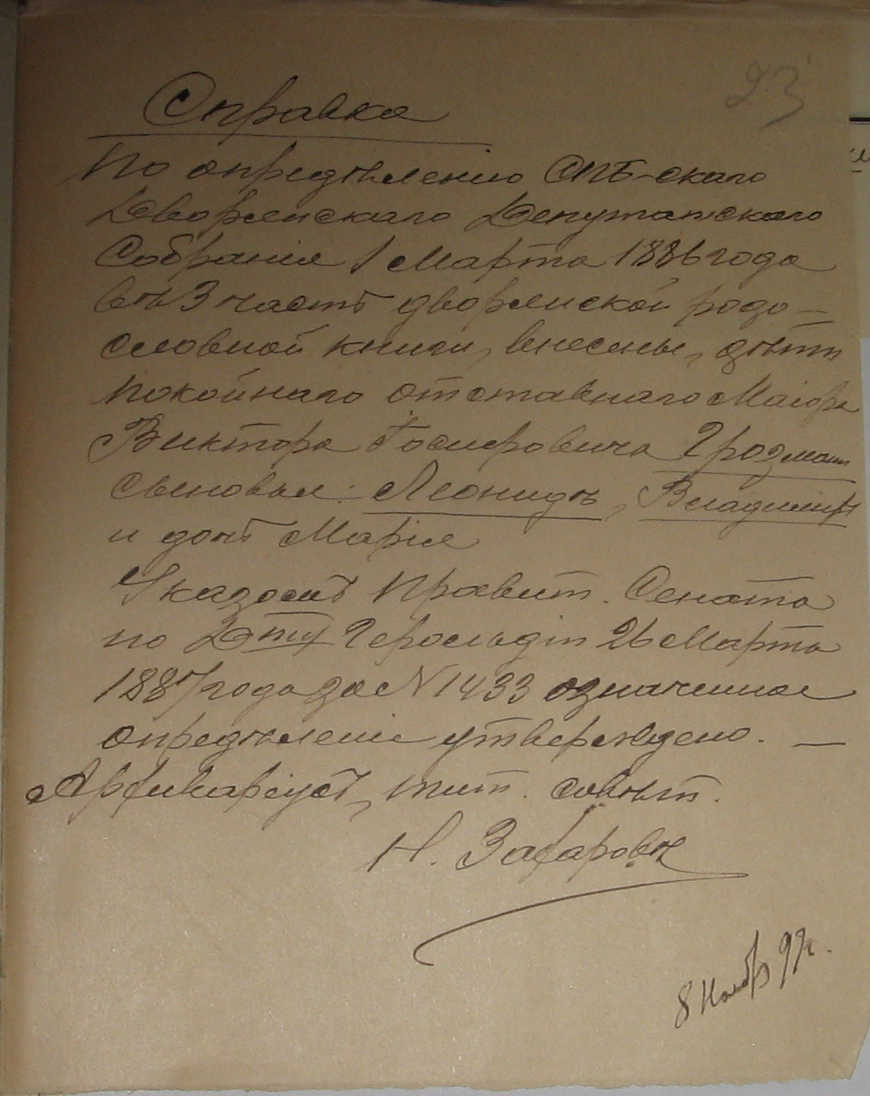 23
Справка
По опредѣленію СПБ-скаго
Дворянскаго Депутатскаго
Собранія 1 Марта 1886 года
въ 3 часть дворянской родо-
словной книги, внесены, дѣти
покойнаго отставнаго Маіора
Виктора Іосифовича Грозмани
сыновья: Леонидъ, Владиміръ
и дочь Марія
Указомъ Правит. Сената
по Дпту Герольдіи 26 Марта
1887 года за № 1433 означенное
опредѣленіе утверждено. —
Архиваріусъ, тит. совѣт.
Н. Захаровъ
8 Ноябр 99 г.